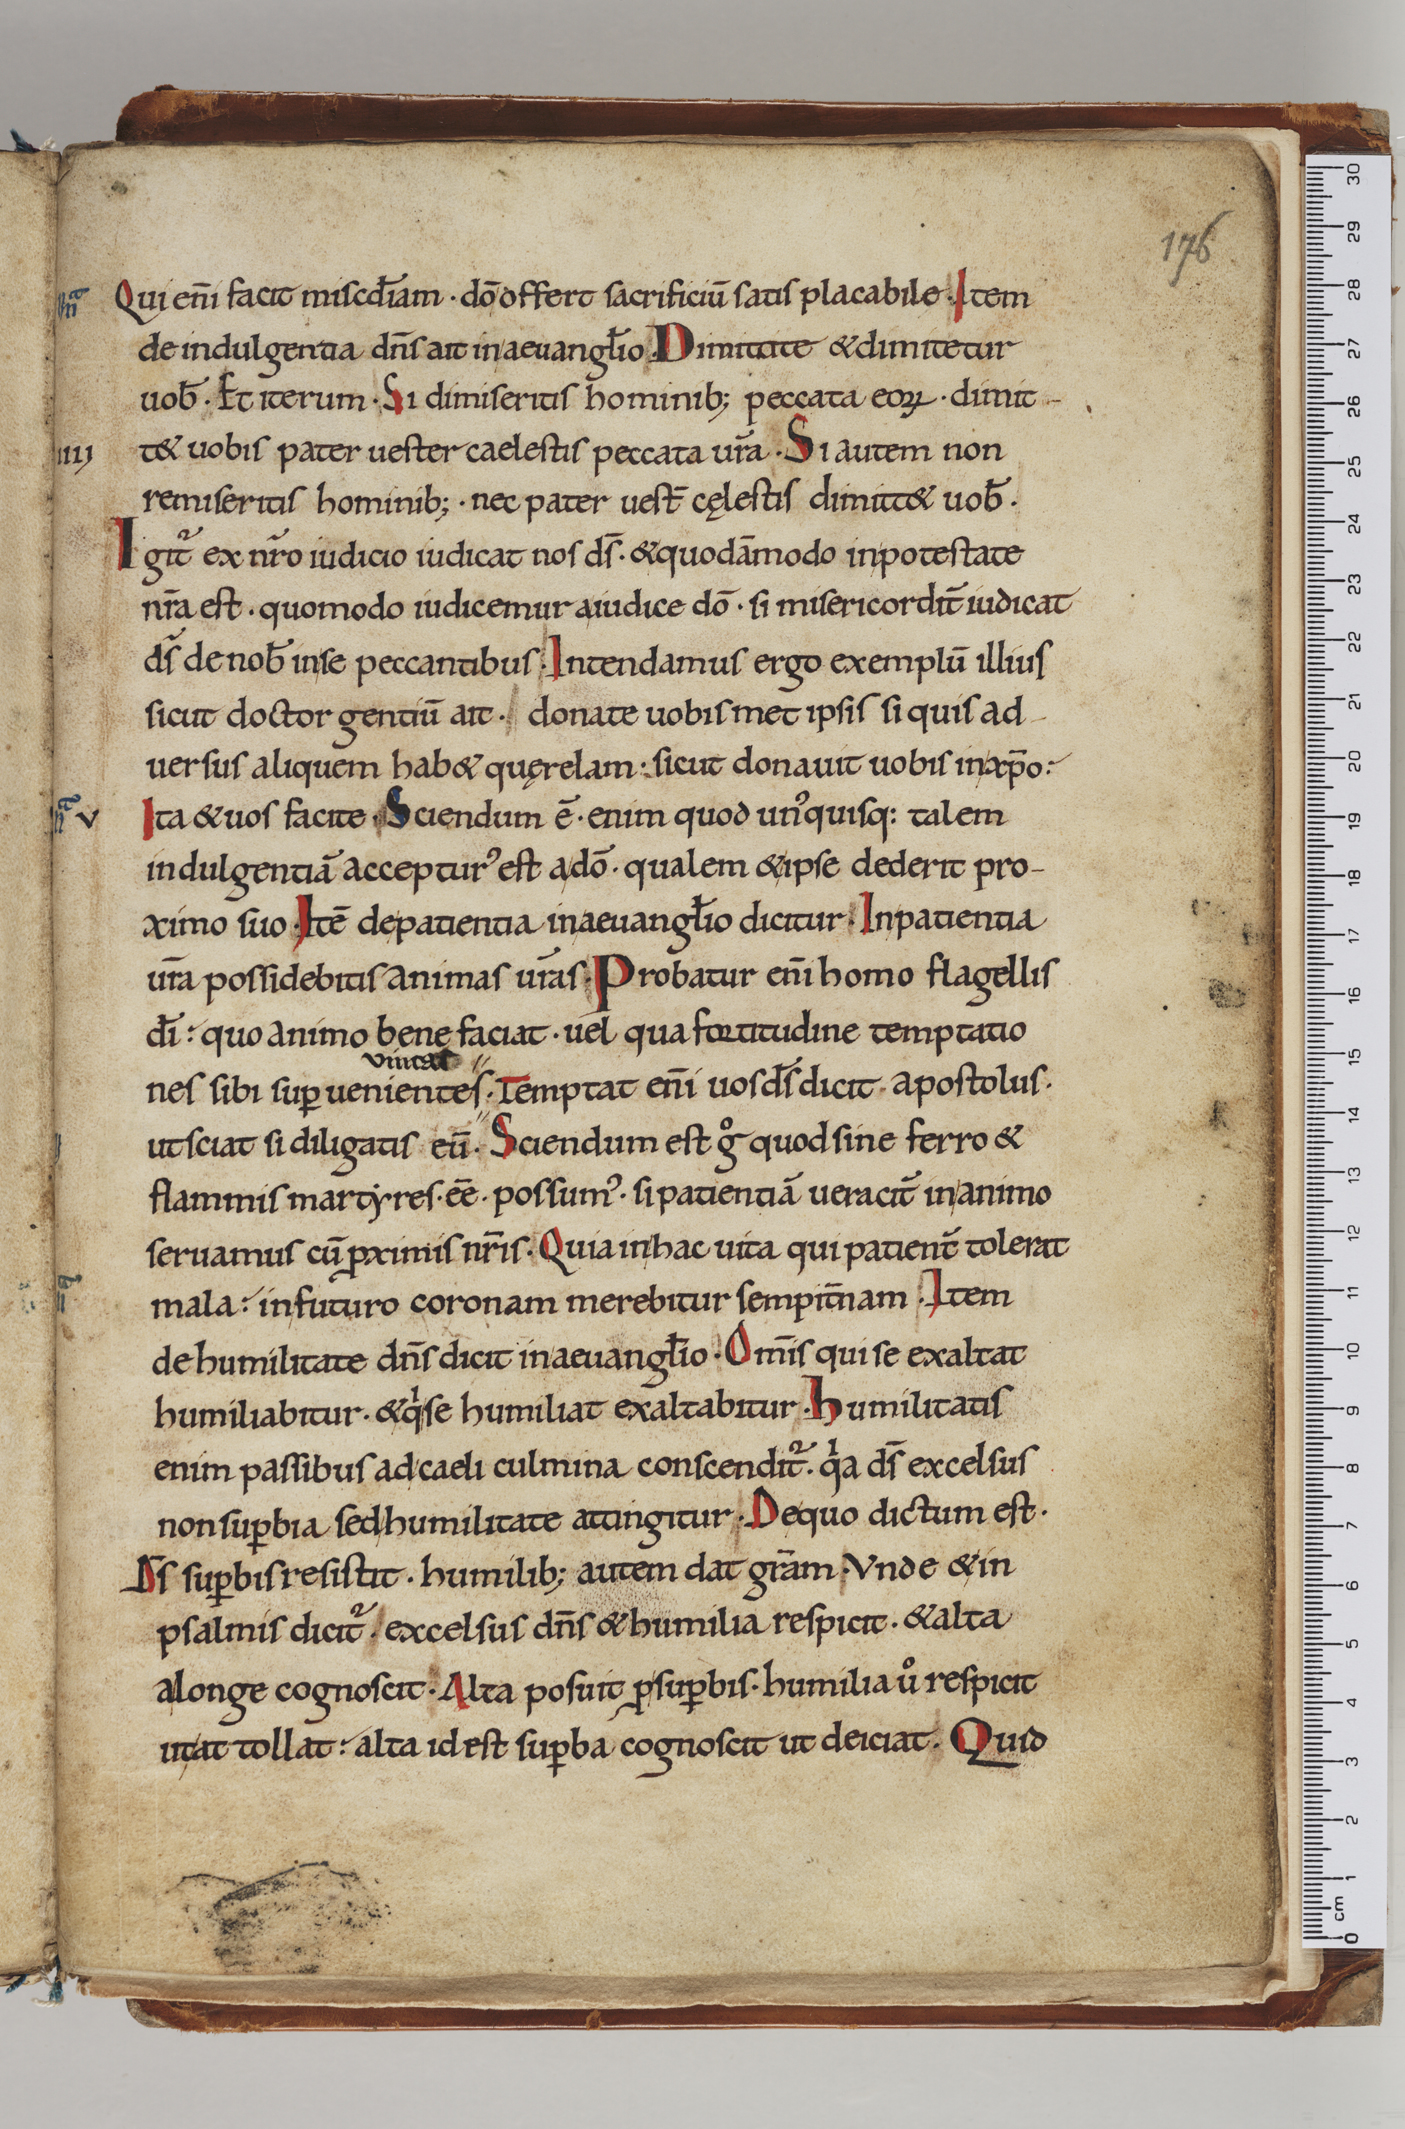 176
Qui eni̅ facit misc̅diam · do̅ offert sacrificiu̅ satis placabile · Item
de indulgentia dn̅s ait in aeuangl̅io · Dimittite & dimitetur
uob̅ · Et iterum · Si dimiseritis hominib; peccata eoꝝ · dimit-
IIII t& uobis pater uester caelestis peccata ur̅a · Si autem non
remiseritis hominib; · nec pater uest̅ cęlestis dimitt& uob̅ ·
Igit᷑ ex nr̅o iudicio iudicat nos ds̅ · & quoda̅modo in potestate
nr̅a est · quomodo iudicemur a iudice do̅ · si misericordit̅ iudicat
ds̅ de nob̅ in se peccantibus · Intendamus ergo exemplu̅ illius
sicut doctor gentiu̅ ait · donate uobis met ipsis si quis ad-
uersus aliquem hab& quęrelam : sicut donauit uobis in xp̅o :
V Ita & uos facite · Sciendum e̅ · enim quod unꝰquisq: talem
indulgentia̅ accepturꝰ est a do̅ · qualem & ipse dederit pro-
ximo suo · Ite̅ de patientia in aeuangl̅io dicitur · In patientia
ur̅a possidebitis animas ur̅as · Probatur eni̅ homo flagellis
di̅ : quo animo bene faciat · uel qua fortitudine temptatio
uincat
nes sibi suꝑuenientes · Temptat eni̅ uos ds̅ dicit · apostolus ·
ut sciat si diligatis eu̅ · Sciendum est gͦ quod sine ferro &
flammis martyres · ee̅ · possumꝰ · si patientia̅ ueracit̅ in animo
seruamus cu̅ ꝓximis nr̅is · Quia in hac uita qui patient̅ tolerat
mala : in futuro coronam merebitur sempit̅nam · Item
de humilitate dn̅s dicit in aeuangl̅io · Om̅is qui se exaltat
humiliabitur · & qͥ se humiliat exaltabitur · humilitatis
enim passibus ad caeli culmina conscendit᷑ · qͥa ds̅ excelsus
non suꝑbia sed humilitate attingitur · De quo dictum est ·
Ds̅ suꝑbis resistit · humilib; autem dat gr̅am · Vnde & in
psalmis dicit᷑ · excelsus dn̅s & humilia respicit · & alta
a longe cognoscit · Alta posuit ꝓ suꝑbis · humilia uͦ respicit
ut at tollat : alta id est suꝑba cognoscit ut deiciat · Quid